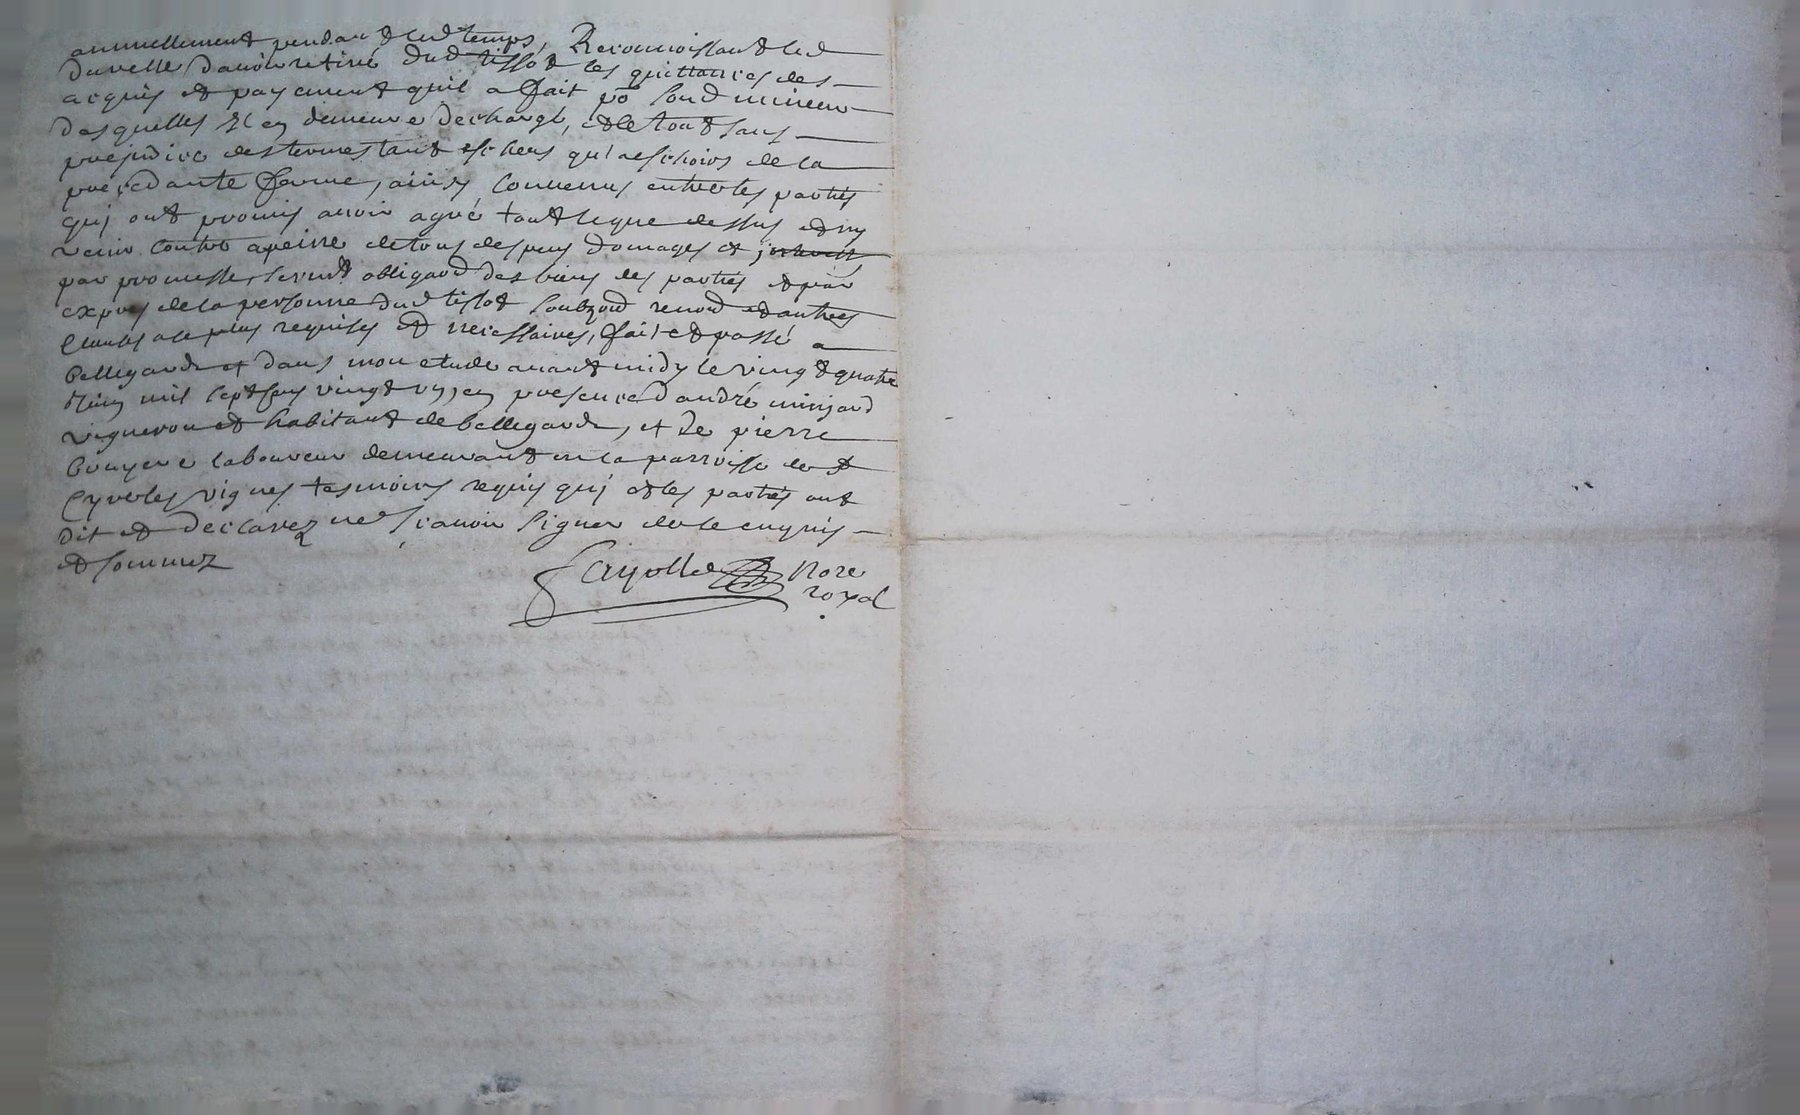 annuellement pendant led temps, Reconnoissant led
duvelle d'avoir retiré dud tissot les quittances des
acquis et payement quil a fait po led mineur
desquelles il en demeure dechargé, et le tout sans
prejudice des termes tant eschus qu'a eschoirs de la
precedante ferme, ainsy convenus entre les parties
quj ont promis avoir agreé tout ceque dessus et ny
venir contre apeine de tous despens domages et interests
par promesse, serment obligaõn des biens des parties et par
expres de la personne dud tissot soubzõn renoõn et autres
clauses a ce plus requises et necessaires, fait et passé a
bellegarde et dans mon etude avant midy le vingt quatre
mil sept cens vingt un, en presence d'andré
vigneron et habitant de bellegarde, et de pierre
bruyere laboureur demeurant en la parroisse de St
Cyr les vignes tesmoins requis quj et les parties ont
dit et declarez ne scavoir signer de ce enquis
et sommez
Fayolle Nore
royal